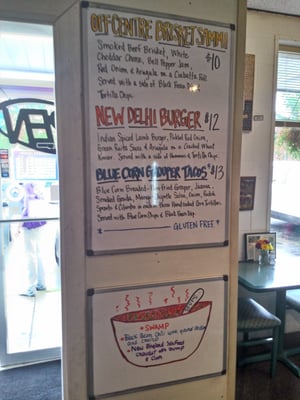 OFF CENTRE BRISKET SAMMI
$10
Smoked Beef Brisket, White
Cheddar Cheese, Bell Pepper Jam,
Red Onion & Arugula on a Ciabatta Roll
Served with a side of Black Bean &
Tortilla Chips
NEW DELHI BURGER $12
Indian Spiced Lamb Burger, Pickled Red Onion,
Green Raita Sauce & Arugula on a Cracked Wheat
Kaiser. Served with a side of Hummus & Tortilla Chips.
BLUE CORN GROUPER TACOS $13
Blue Corn Breaded Fried Grouper,
Smoked Gouda, Mango Salsa, Onion, Radish
Sprouts & Cilantro in Handmade Corn Tortillas.
Served with Blue Corn Chips & Black Bean Dip
* GLUTEN FREE *
OPEN
* SWAMP
* Black Bean Chili with
* New England Seafood
Chowder with Shrimp
& Clam